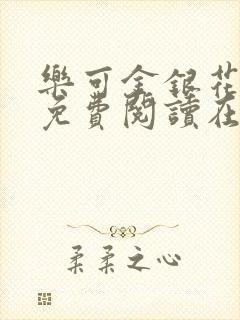 樂可金銀花
免費閱讀在
柔柔之心